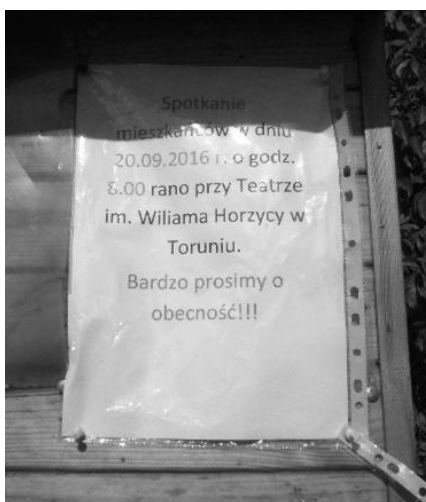 Spotkanie
mieszkańców w dniu
20.09.2016 r. o godz.
8.00 rano przy Teatrze
im. Wiliama Horzycy w
Toruniu.
Bardzo prosimy o
obecność!!!